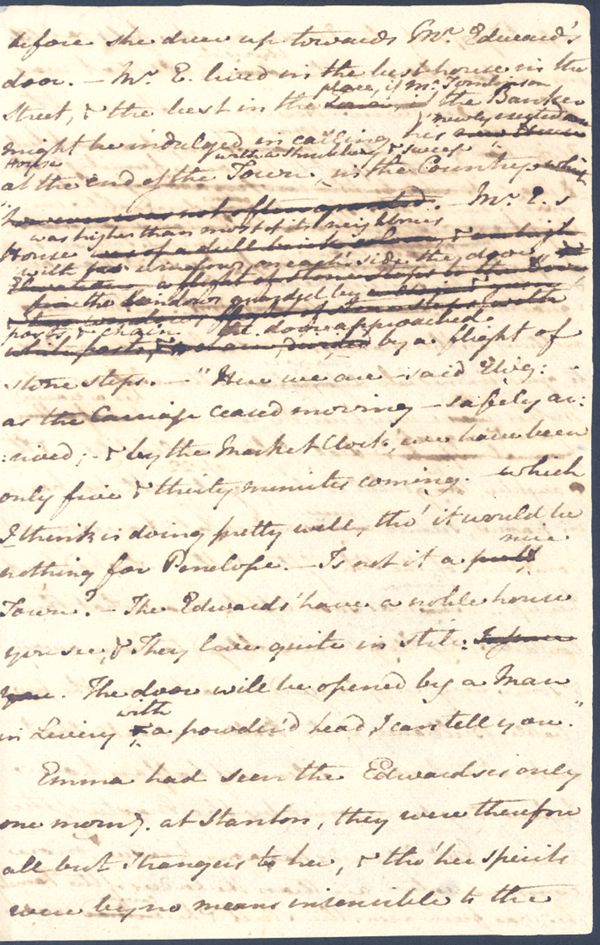 before she drew up towards Mr. Edward's
door. — Mr. E. lived in the best house in the
place, if Mr. Tomlinson
Street, & the best in the the Banker
newly erected
might be indulged in calling his
House with a shrubbery & sweep
at the end of the Town in the Country which
however was not often granted. — Mr. E.s
was higher than most of its neighbours
House was of a dull brick colour, & a high
with windows on each side the door
Elevation a flight of stone steps to the door
the windows guarded by
posts & chain the door approached
white posts & a chain, divided by a flight of
stone steps. — "Here we are — said Eliz:
as the Carriage ceased moving — safely ar:
:rived; — & by the Market Clock, we have been
only five & thirty minutes coming. — which
I think is doing pretty well, tho' it would be
nice
nothing for Penelope. — Is not it a
Town? — The Edwards' have a noble house
you see, & They live quite in stile.
you. The door will be opened by a Man
with
in Livery & a powder'd head, I can tell you."
Emma had seen the Edwardses only
one morng. at Stanton, they were therefore
all but Strangers to her, & tho' her spirits
were by no means insensible to the